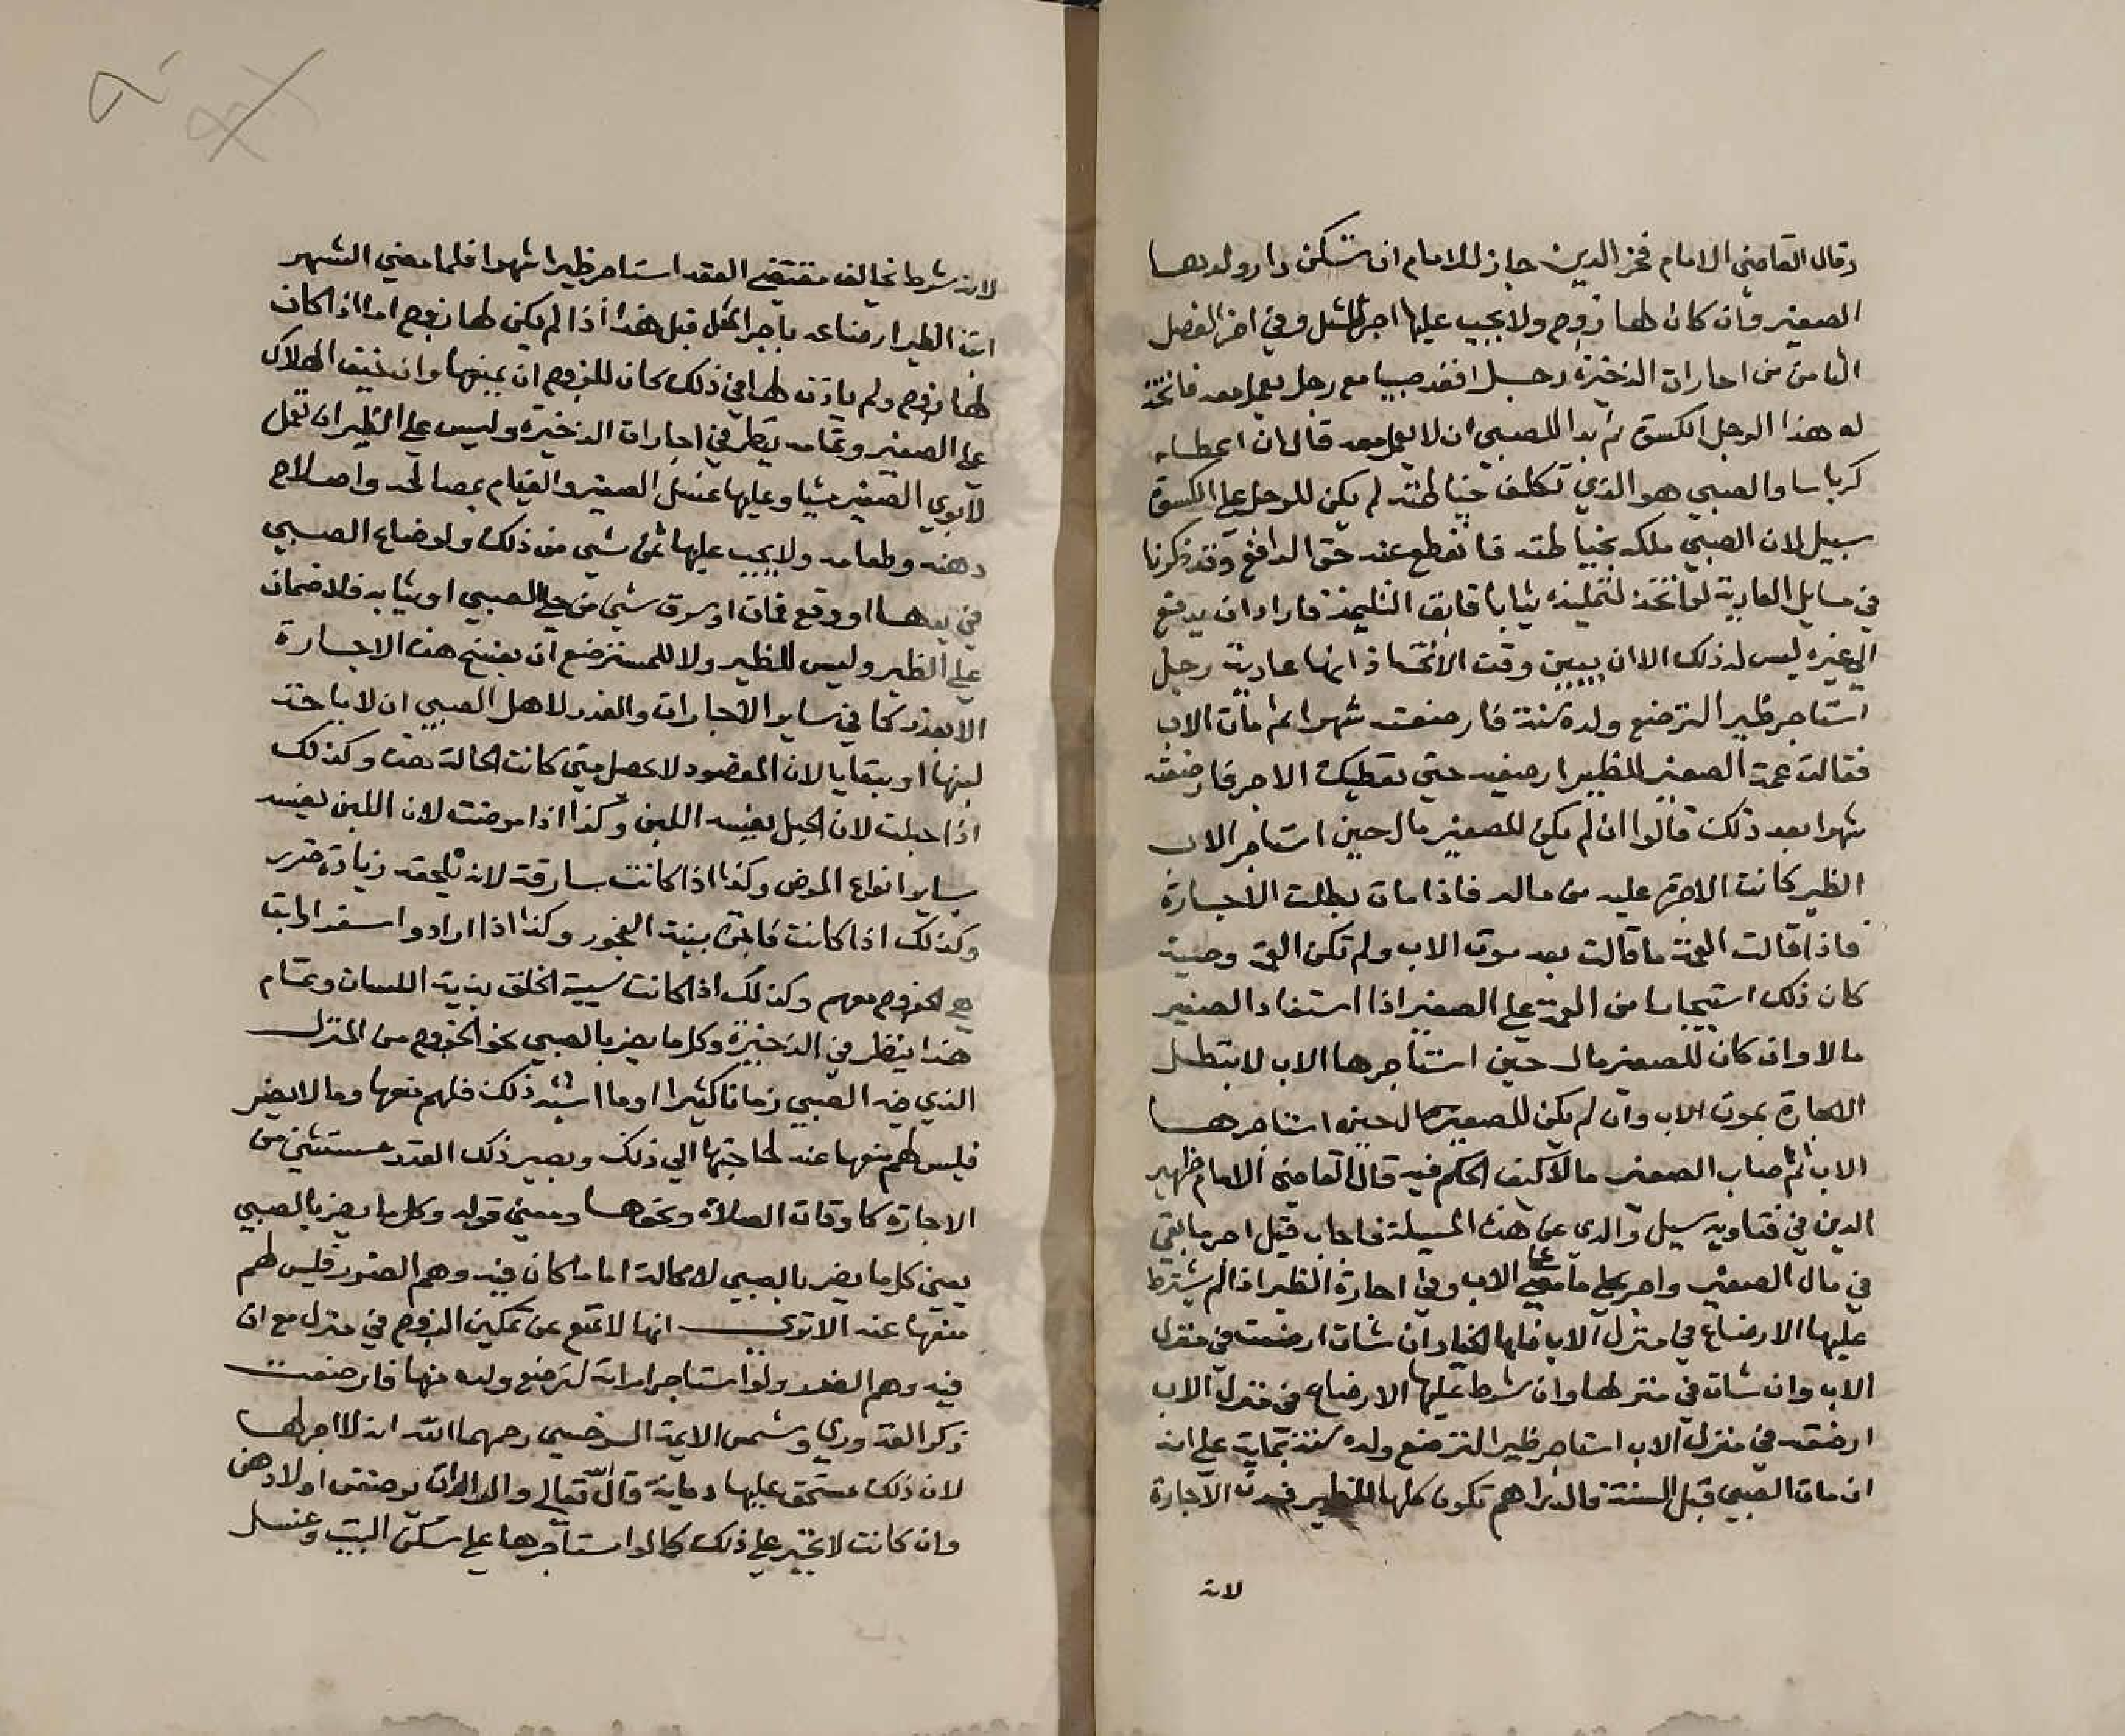 وقال القاضي الامام فخر الدين جاز للامام ان تسكن دار ولدها
الصغير وان كان لها زوج ولا يجب عليها اجر المثل وفي اخر الفصل
الثامن من اجارات الذخيرة رجل اقعد صبيا مع رجل يعمل معه فاتخذ
له هذا الرجل الكسوة ثم بدا للصبي ان لا يعمل معه قال ان اعطاه
كرباسا والصبي هو الذي تكلف خياطته لم يكن للرجل علي الكسوة
سبيل لان الصبي ملكه بخياطته فانقطع عنه حق الدافع وقد ذكرنا
في مسايل العارية لو اتخذ لتلميذه ثيابا فابق التلميذ فاراد ان يدفع
الي غيره ليس له ذلك الا ان يبين وقت الاتخاذ انها عارية رجل
استاجر ظيرا لترضع ولده سنة فارضعت شهرا ثم مات الاب
فقالت عمة الصغير للظير ارضعيه حتي نعطيك الاجر فارضعته
شهرا بعد ذلك قالوا ان لم يكن للصغير مال حين استاجر الاب
الظير كانت الاجرة عليه من ماله فاذا مات بطلت الاجارة
فاذا قالت العمة ما قالت بعد موت الاب ولم تكن العمة وصية
كان ذلك استيجارا من العمة علي الصغير اذا استفاد الصغير
مالا وان كان للصغير مال حين استاجرها الاب لا تبطل
الاجارة بموت الاب وان لم يكن للصغير مال حين استاجرها
الاب ثم اصاب الصغير مالا كيف الحكم فيه قال القاضي الامام ظهير
الدين في فتاويه سيل والدي عن هذه المسيلة فاجاب قيل اجر ما بقي
في مال الصغير واجر ما مضي علي الاب وفي اجارة الظير اذا لم يشترط
عليها الارضاع في منزل الاب فلها الخيار ان شات ارضعت في منزل
الاب وان شات في منزلها وان شرط عليها الارضاع في منزل الاب
ارضعته في منزل الاب استاجر ظيرا لترضع ولده سنة بماية علي انه
ان مات الصبي قبل السنة فالدراهم تكون كلها للظير فسدت الاجارة
لانه
لانه شرط يخالف مقتضي العقد استاجر ظيرا شهرا فلما مضي الشهر
ابت الظير ارضاعه باجر المثل قيل هذا اذا لم يكن لها زوج اما اذا كان
لها زوج ولم ياذن لها في ذلك كان للزوج ان يمنعها وان خيف الهلاك
علي الصغير وتمامه ينظر في اجارات الذخيرة وليس علي الظير ان تعمل
لابوي الصغير شيا وعليها غسل الصغير والقيام بمصالحه واصلاح
دهنه وطعامه ولا يجب عليها ثمن شي من ذلك ولو ضاع الصبي
في يدها او وقع فمات او سرق شي من حلي الصبي او ثيابه فلا ضمان
علي الظير وليس للظير ولا للمسترضع ان يفسخ هذه الاجارة
الا بعذر كما في ساير الاجارات والعذر لاهل الصبي ان لا ياخذ
لبنها او يتقايا لان المقصود لا يحصل متي كانت الحالة هذه وكذلك
اذا حبلت لان الحبل يفسد اللبن وكذا اذا مرضت لان اللبن يفسد
بساير انواع المرض وكذا اذا كانت سارقة لانه تلحقه زيادة ضرر
وكذلك اذا كانت فاجرة بينة الفجور وكذا اذا ارادوا سفرا وابت
هي الخروج معهم وكذلك اذا كانت سيية الخلق بذية اللسان وتمام
هذا ينظر في الذخيرة وكل ما يضر بالصبي نحو الخروج من المنزل
الذي فيه الصبي زمانا كثيرا او ما اشبه ذلك فلهم منعها وما لا يضر
فليس لهم منعها عنه لحاجتها الي ذلك ويصير ذلك القدر مستثني من
الاجارة كاوقات الصلاة ونحوها ومعني قوله وكل ما يضر بالصبي
يعني كل ما يضر بالصبي لا محالة اما ما كان فيه وهم الضرر فليس لهم
منعها عنه الا تري انها لا تمنع عن تمكين الزوج في منزله مع ان
فيه وهم الضرر ولو استاجر امراته لترضع ولده منها فارضعت
ذكر القدوري وشمس الايمة السرخسي رحمهما الله انه لا اجر لها
لان ذلك مستحق عليها ديانة قال الله تعالي والوالدات يرضعن اولادهن
وان كانت لا تجبر علي ذلك كما لو استاجرها علي كنس البيت وغسل